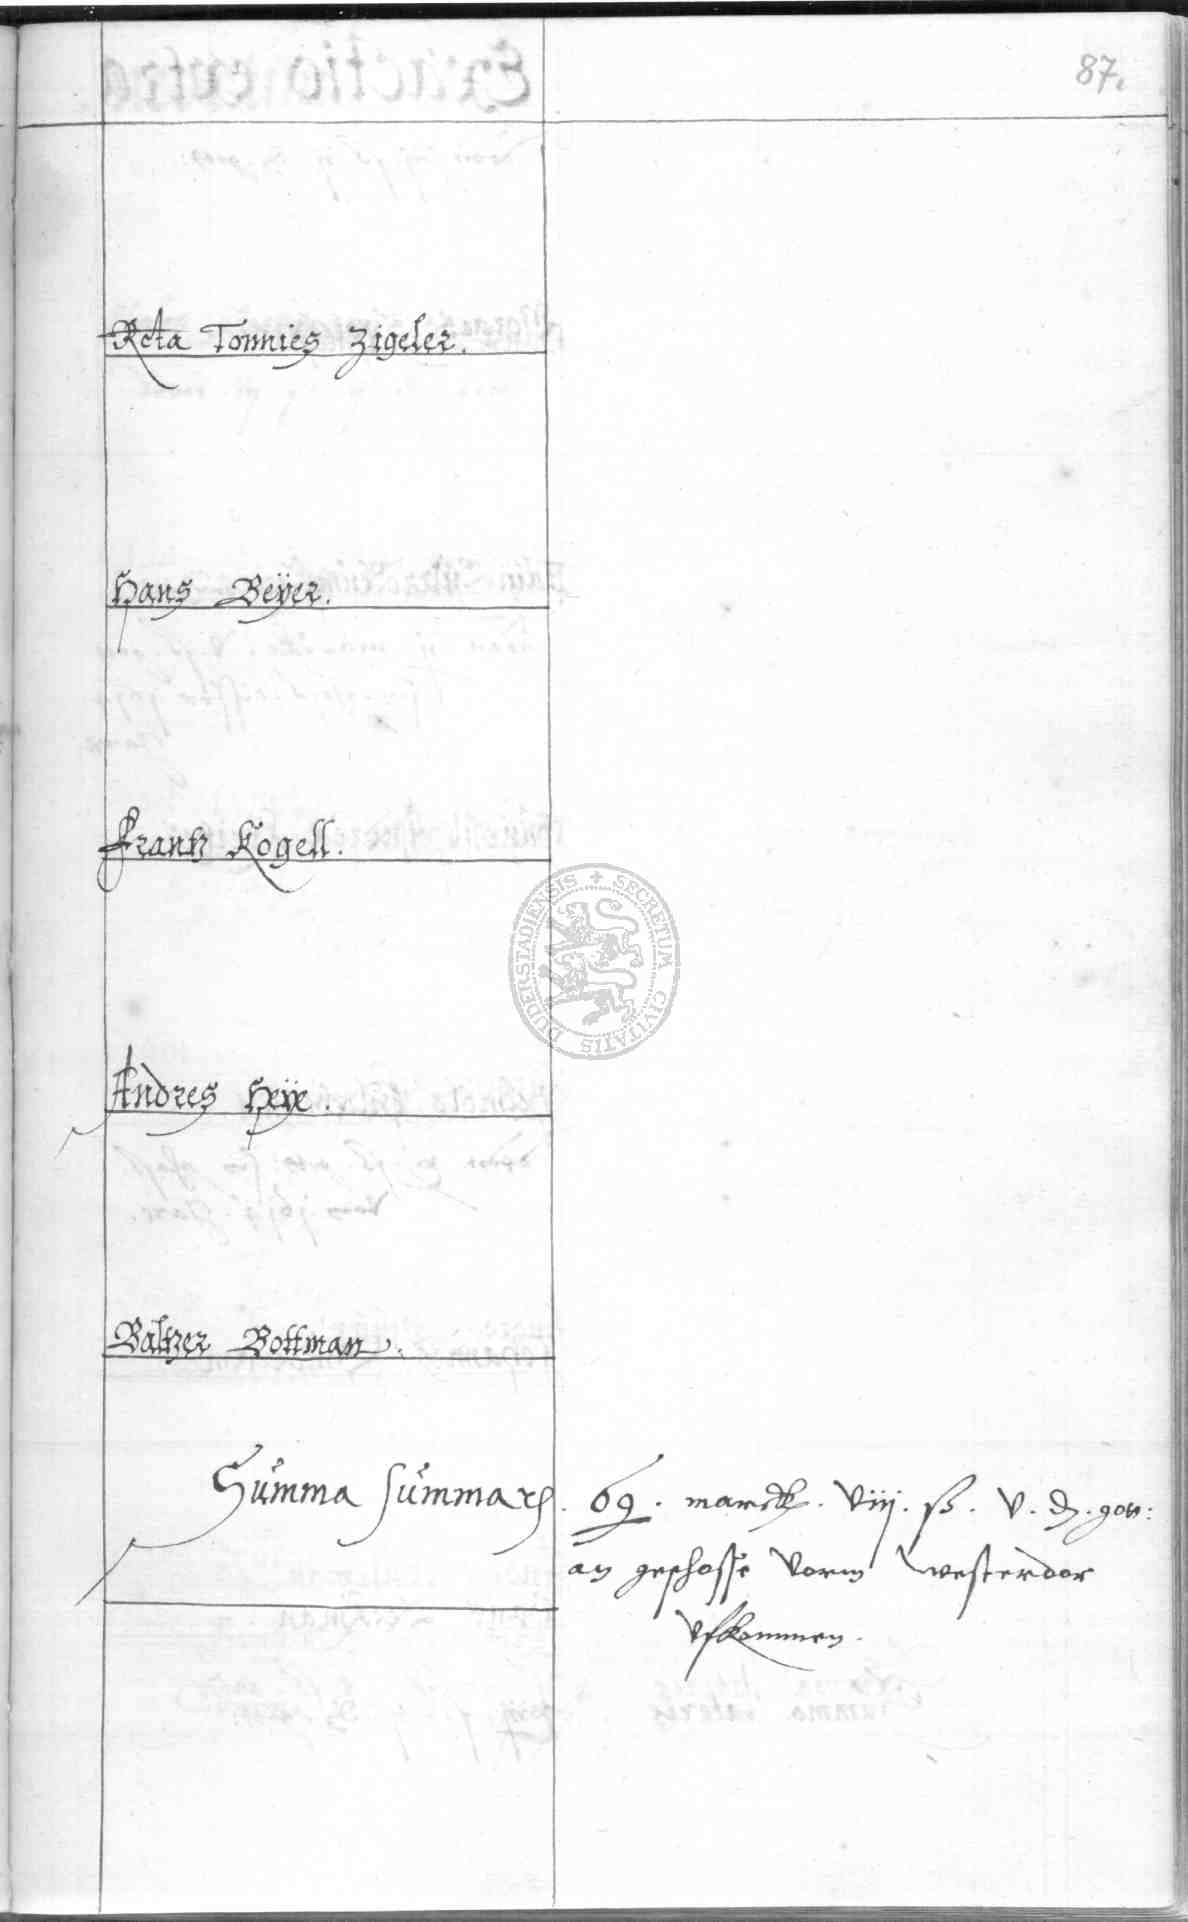 87.
Tonnies Zigeler.
Hans Beÿer.
Frantz Kogell.
Andres Heÿe.
Baltzer Bottman.
Summa summarum. 69. marck. viij. ß. v. d. gott:
an geschosse vorm westerdor
ufkommen.
DUDERSTADIENSIS + SECRETUM CIVITATIS